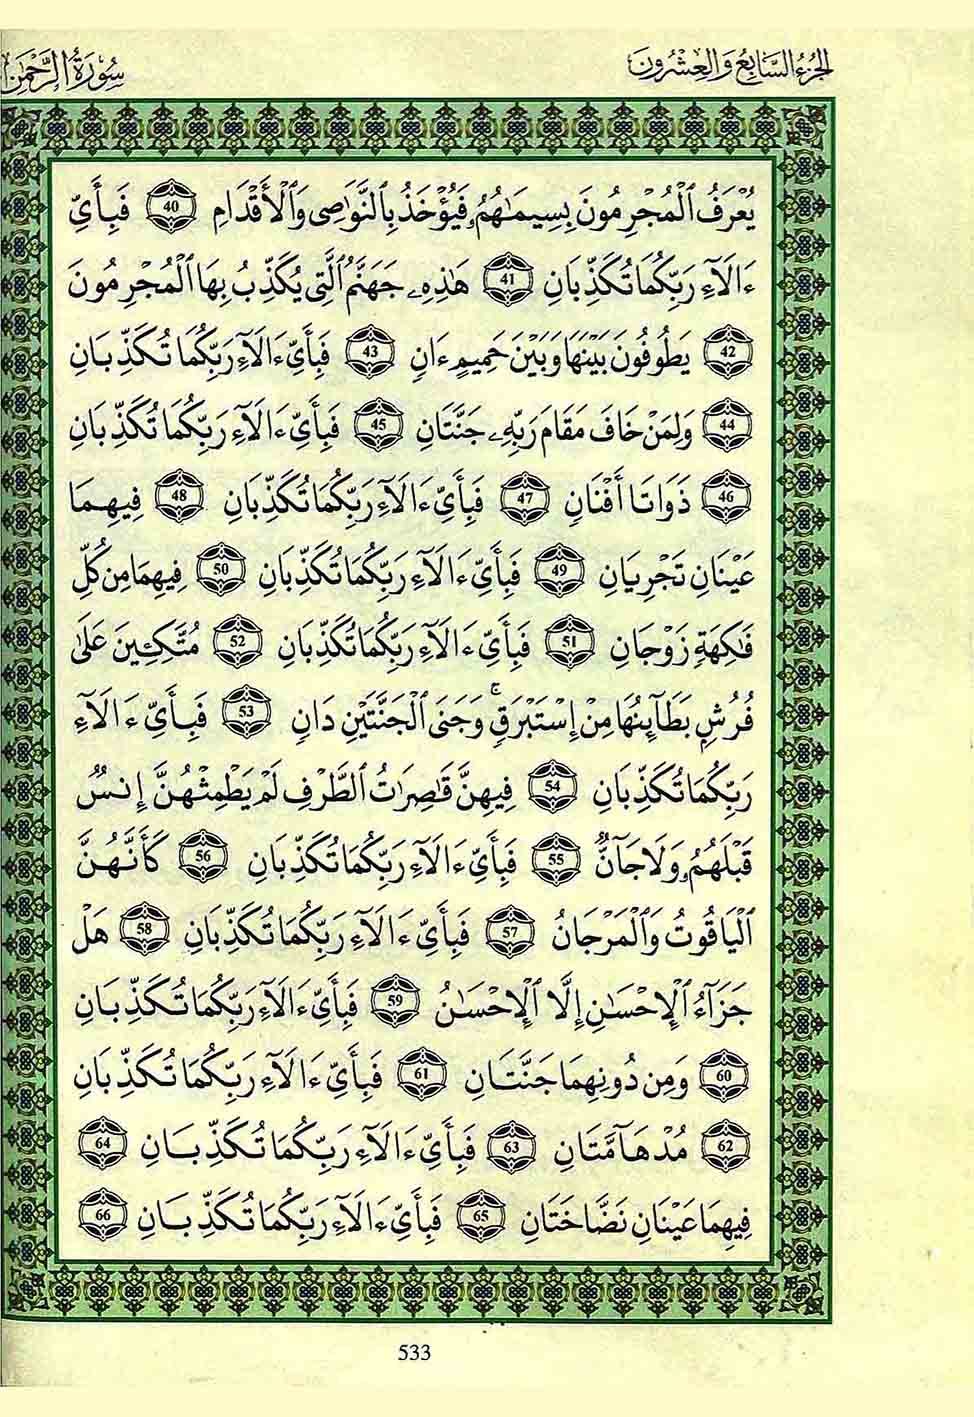 الجزء السابع والعشرون
سورة الرحمن
يُعْرَفُ ٱلْمُجْرِمُونَ بِسِيمَـٰهُمُۥ فَيُؤْخَذُ بِٱلنَّوَٰصِى وَٱلْأَقْدَامِ 40 فَبِأَىِّ
ءَالَآءِ رَبِّكُمَا تُكَذِّبَانِ 41 هَـٰذِهِۦ جَهَنَّمُ ٱلَّتِى يُكَذِّبُ بِهَا ٱلْمُجْرِمُونَ
42 يَطُوفُونَ بَيْنَهَا وَبَيْنَ حَمِيمٍ ءَانٍ 43 فَبِأَىِّ ءَالَآءِ رَبِّكُمَا تُكَذِّبَانِ
44 وَلِمَنْ خَافَ مَقَامَ رَبِّهِۦ جَنَّتَانِ 45 فَبِأَىِّ ءَالَآءِ رَبِّكُمَا تُكَذِّبَانِ
46 ذَوَاتَا أَفْنَانٍ 47 فَبِأَىِّ ءَالَآءِ رَبِّكُمَا تُكَذِّبَانِ 48 فِيهِمَا
عَيْنَانِ تَجْرِيَانِ 49 فَبِأَىِّ ءَالَآءِ رَبِّكُمَا تُكَذِّبَانِ 50 فِيهِمَا مِن كُلِّ
فَـٰكِهَةٍ زَوْجَانِ 51 فَبِأَىِّ ءَالَآءِ رَبِّكُمَا تُكَذِّبَانِ 52 مُتَّكِـِٔينَ عَلَىٰ
فُرُشٍ بَطَآئِنُهَا مِنْ إِسْتَبْرَقٍ ۚ وَجَنَى ٱلْجَنَّتَيْنِ دَانٍ 53 فَبِأَىِّ ءَالَآءِ
رَبِّكُمَا تُكَذِّبَانِ 54 فِيهِنَّ قَـٰصِرَٰتُ ٱلطَّرْفِ لَمْ يَطْمِثْهُنَّ إِنسٌ
قَبْلَهُمُۥ وَلَا جَآنٌّ 55 فَبِأَىِّ ءَالَآءِ رَبِّكُمَا تُكَذِّبَانِ 56 كَأَنَّهُنَّ
ٱلْيَاقُوتُ وَٱلْمَرْجَانُ 57 فَبِأَىِّ ءَالَآءِ رَبِّكُمَا تُكَذِّبَانِ 58 هَلْ
جَزَآءُ ٱلْإِحْسَـٰنِ إِلَّا ٱلْإِحْسَـٰنُ 59 فَبِأَىِّ ءَالَآءِ رَبِّكُمَا تُكَذِّبَانِ
60 وَمِن دُونِهِمَا جَنَّتَانِ 61 فَبِأَىِّ ءَالَآءِ رَبِّكُمَا تُكَذِّبَانِ
62 مُدْهَآمَّتَانِ 63 فَبِأَىِّ ءَالَآءِ رَبِّكُمَا تُكَذِّبَانِ 64
فِيهِمَا عَيْنَانِ نَضَّاخَتَانِ 65 فَبِأَىِّ ءَالَآءِ رَبِّكُمَا تُكَذِّبَانِ 66
533